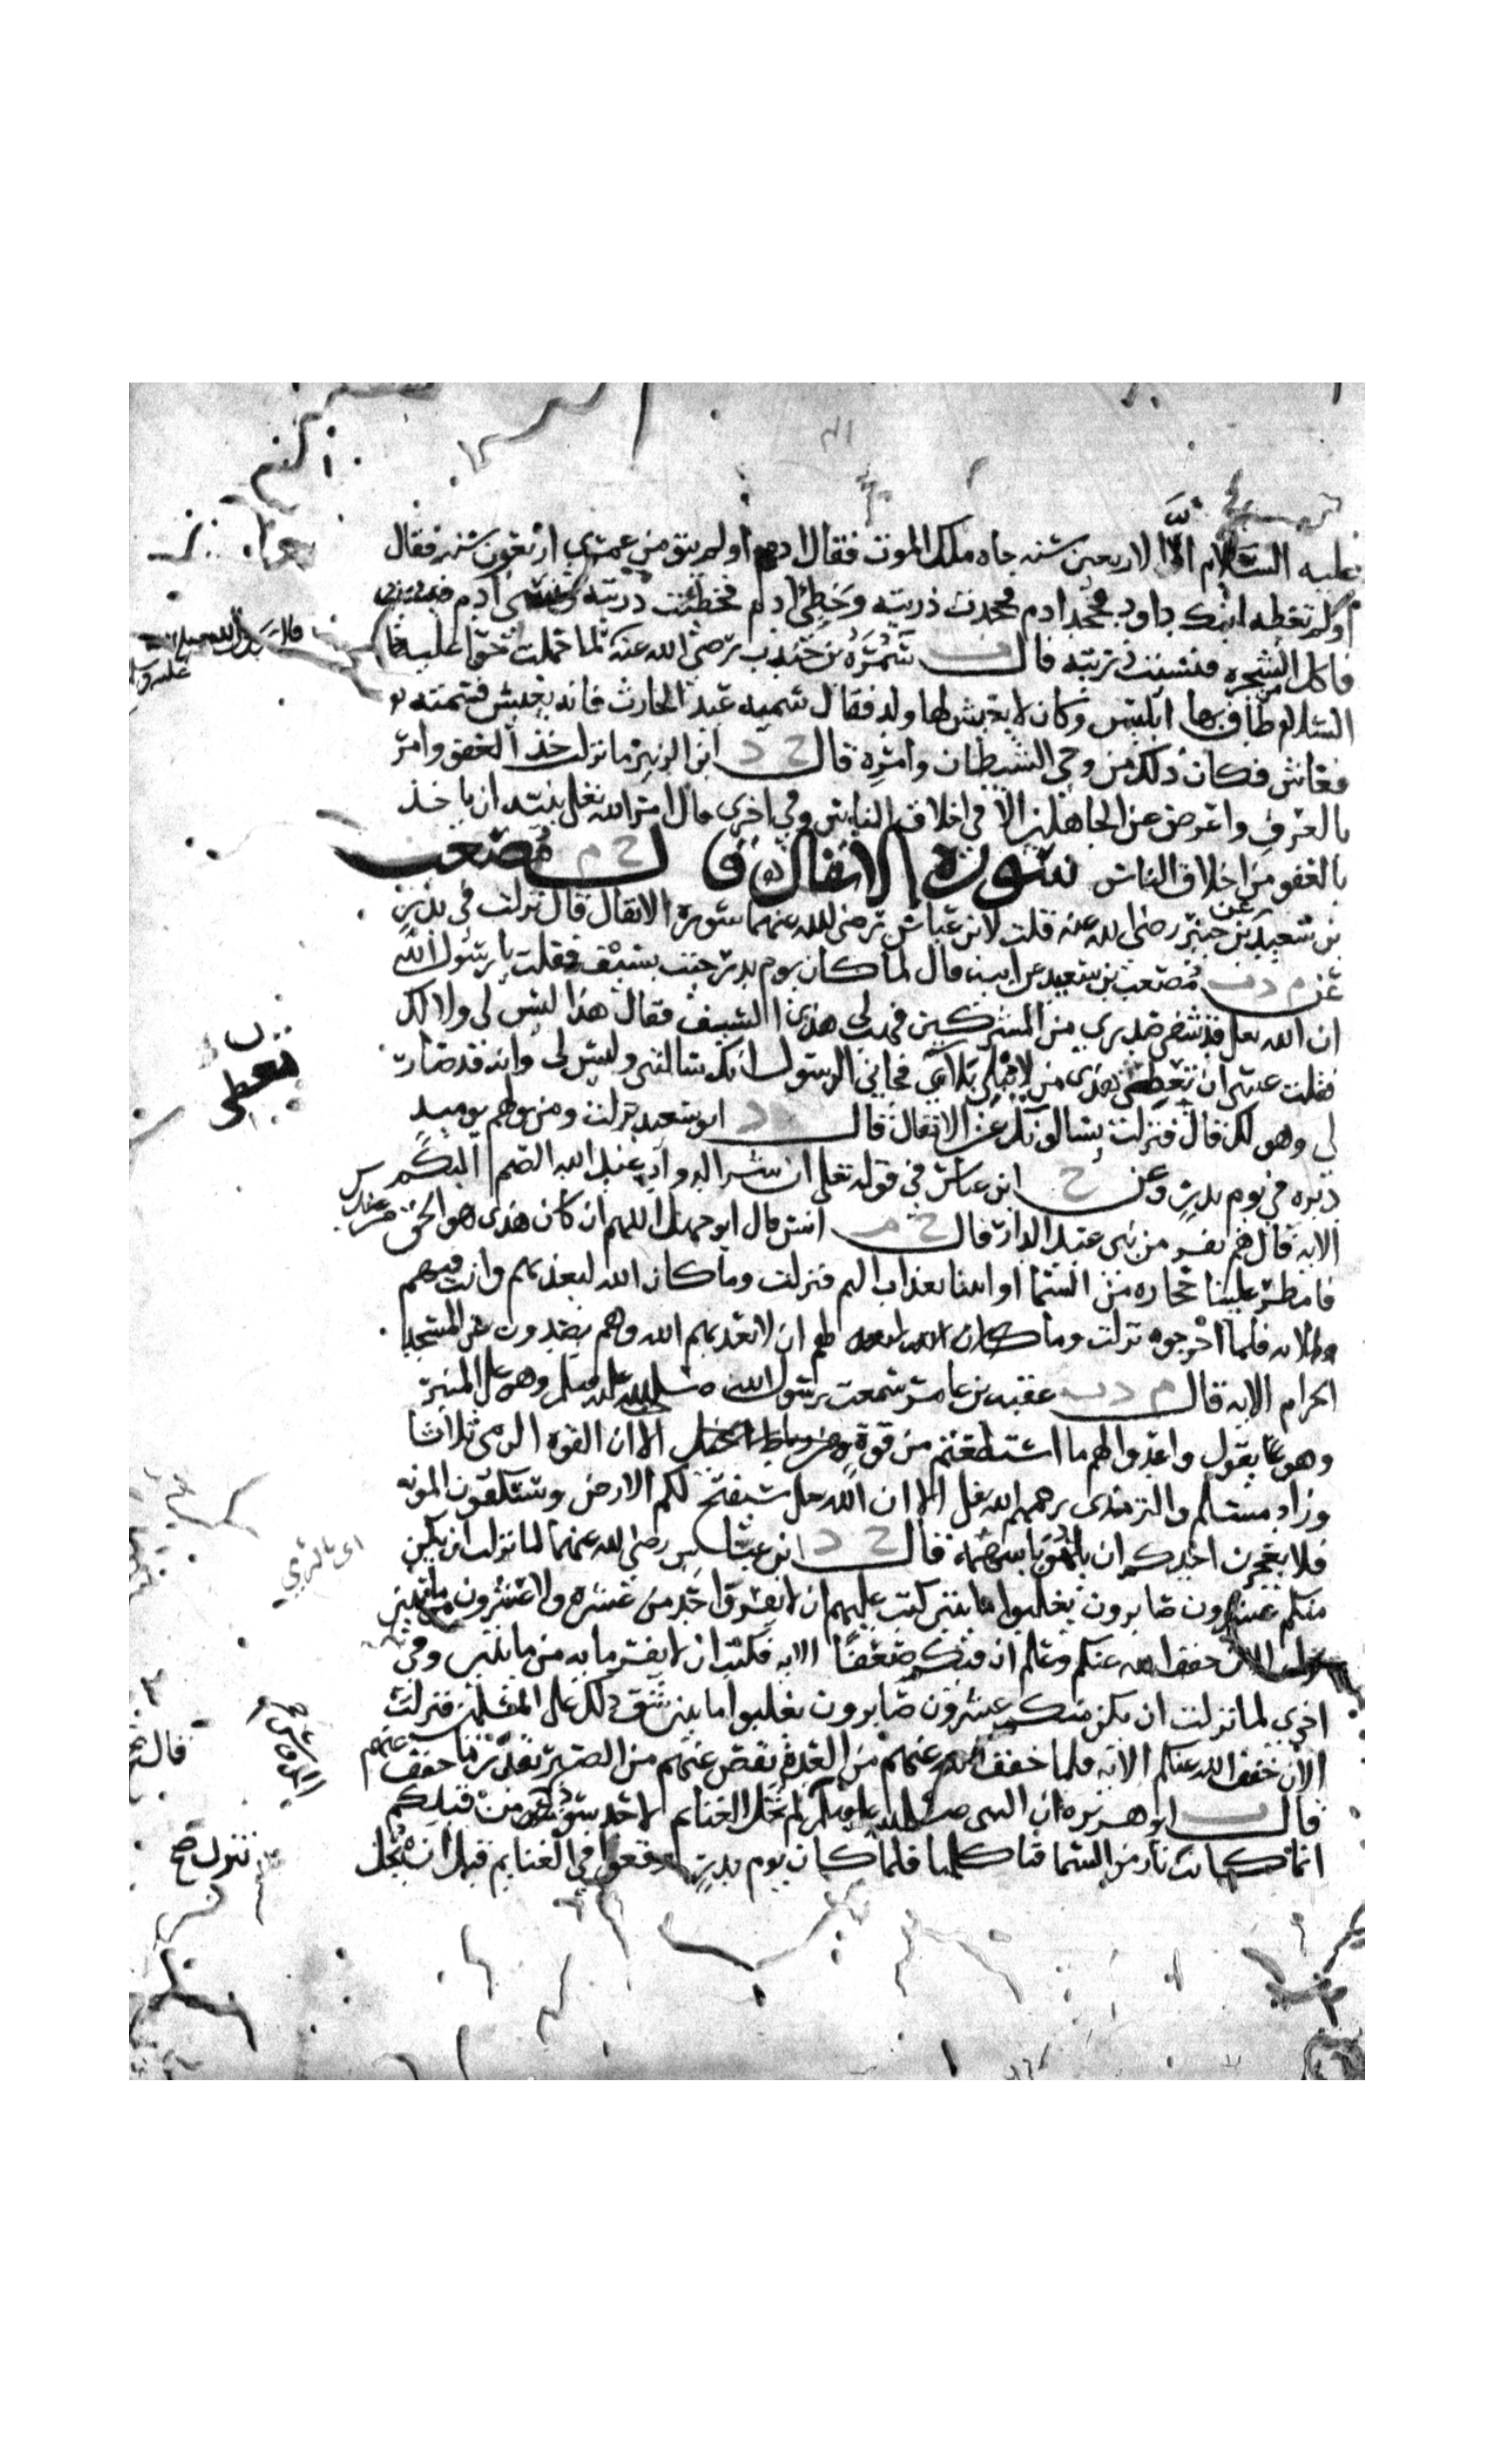 عليه السلام الا الاربعين سنه جاه ملك الموت فقال ادم اولم يبق من عمري اربعون سنه فقال
اولم تعطه ابنك داود فجحد ادم فجحدت ذريته وخطئ ادم فخطئت ذريته ونسي ادم
فاكل من الشجره فنسيت ذريته قال ت سمره بن جندب رضي الله عنه لما حملت حوا عليها
السلام طاف بها ابليس وكان لا يعيش لها ولد فقال سميه عبد الحارث فانه يعيش فسمته
فعاش فكان ذلك من وحي الشيطان وامره قال خ د ابن الزبير ما نزلت خذ العفو وامر
بالعرف واعرض عن الجاهلين الا في اخلاق الناس وفي اخرى قال امر الله تعالى نبيه ان ياخذ
بالعفو من اخلاق الناس سورة الانفال قال خ م مصعب
بن سعيد عن بن جبير رضي الله عنه قلت لابن عباس رضي الله عنهما سورة الانفال قال نزلت في بدر
عن م د ت مصعب بن سعيد عن ابيه قال لما كان يوم بدر جيت بسيف فقلت يا رسول الله
ان الله تعالى قد شفى صدري من المشركين فهب لي هذا السيف فقال هذا ليس لي ولا لك
فقلت عسى ان يعطى هذى من لا يبلي بلاءي فجاني الرسول انك سالتني وليس لي وانه قد صارت
لي وهو لك قال فنزلت يسالونك عن الانفال قال د ابو سعيد نزلت ومن يولهم يوميد
دبره في يوم بدر وعن خ ابن عباس في قوله تعالى ان شر الدواب عند الله الصم البكم
الايه قال هم نفر من بني عبد الدار قال خ م انس قال ابو جهل اللهم ان كان هذى هو الحق من عندك
فامطر علينا حجاره من السما او ايتنا بعذاب اليم فنزلت وما كان الله ليعذبهم وانت فيهم
الايه فلما اخرجوه نزلت وما لهم ان لا يعذبهم الله وهم يصدون عن المسجد
الحرام الايه قال م د ت عقبه بن عامر سمعت رسول الله صلى الله عليه وسلم وهو على المنبر
وهو يقول واعدوا لهم ما استطعتم من قوة الا ان القوه الرمي ثلاثا
وزاد مسلم والترمذى رحمهم الله تعالى الا ان الله سيفتح لكم الارض وستكفون المونه
فلا يعجزن احدكم ان يلهو باسهمه قال خ د ابن عباس رضي الله عنهما لما نزلت ان يكن
منكم عشرون صابرون يغلبوا مايتين كتب عليهم ان لا يفر واحد من عشره ولا عشرون من مايتين
الان خفف الله عنكم وعلم ان فيكم ضعفا الايه فكتب ان لا يفر مايه من مايتين وفي
اخرى لما نزلت ان يكن منكم عشرون صابرون يغلبوا مايتين شق ذلك على المسلمين فنزلت
الان خفف الله عنكم الايه فلما خفف الله عنهم من العدة نقص عنهم من الصبر بقدر ما خفف عنهم
قال ت ابو هريره ان النبي صلى الله عليه وسلم قال لم تحل الغنايم لاحد سود من قبلكم
انما كانت نار من السما فتاكلها فلما كان يوم بدر وقعوا في الغنايم قبل ان تحل